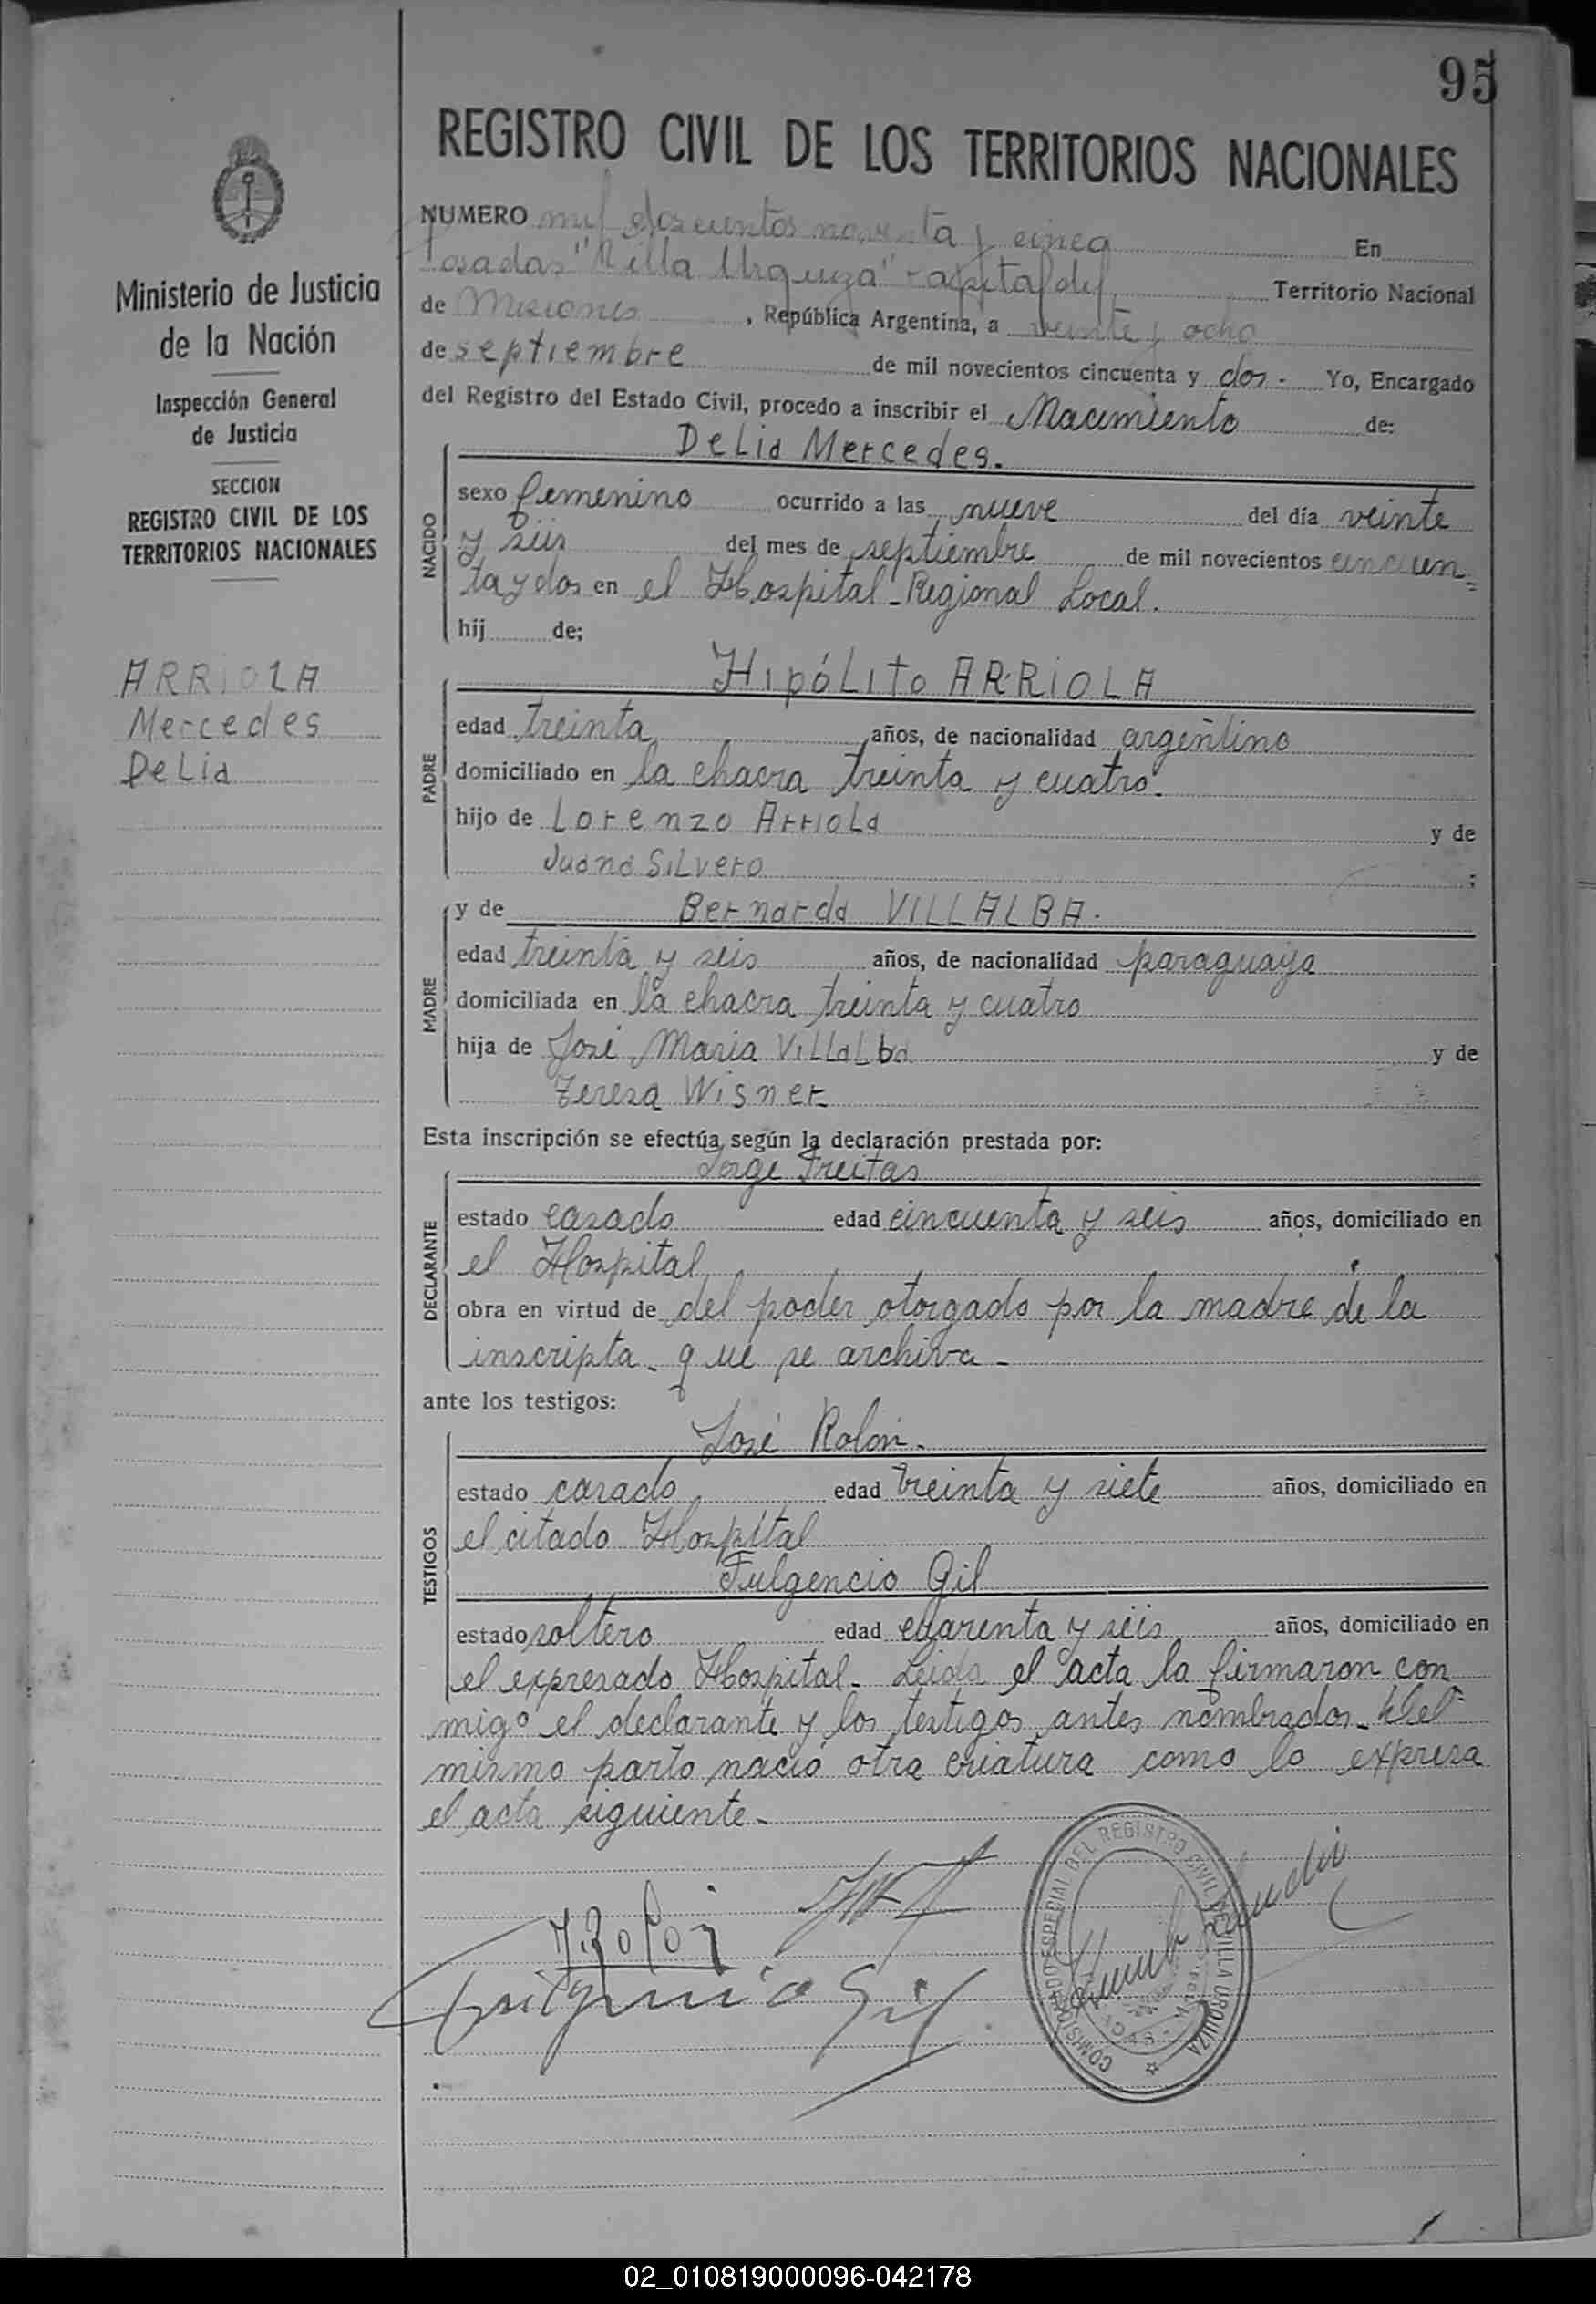 95
REGISTRO CIVIL DE LOS TERRITORIOS NACIONALES
Ministerio de Justicia
de la Nación
Inspección General
de Justicia
SECCION
REGISTRO CIVIL DE LOS
TERRITORIOS NACIONALES
ARRiOLA
Mercedes
DeLia
NUMERO mil doscientos noventa y cinco En
Posadas "Villa Urquiza" capital del Territorio Nacional
de Misiones , República Argentina, a veinte y ocho
de septiembre de mil novecientos cincuenta y dos. Yo, Encargado
del Registro del Estado Civil, procedo a inscribir el Nacimiento de:
DeLia Mercedes.
NACIDO
sexo femenino ocurrido a las nueve del día veinte
y seis del mes de septiembre de mil novecientos cincuen=
ta y dos en el Hospital-Regional Local.
hij de;
HipóLito ARRiOLA
PADRE
edad treinta años, de nacionalidad argentino
domiciliado en la chacra treinta y cuatro.
hijo de Lorenzo ArrioLa y de
Juana SiLvero ;
y de Bernarda VILLALBA.
MADRE
edad treinta y seis años, de nacionalidad paraguaya
domiciliada en la chacra treinta y cuatro
hija de José Maria ViLLaLba y de
Teresa Wisner
Esta inscripción se efectúa según la declaración prestada por:
Jorge Freitas
DECLARANTE
estado casado edad cincuenta y seis años, domiciliado en
el Hospital
obra en virtud de del poder otorgado por la madre de la
inscripta - que se archiva -
ante los testigos:
José Rolón.
TESTIGOS
estado casado edad treinta y siete años, domiciliado en
el citado Hospital
Fulgencio Gil
estado soltero edad cuarenta y seis años, domiciliado en
el expresado Hospital - Leida el acta la firmaron con
migo el declarante y los testigos antes nombrados - Del
mismo parto nació otra criatura como lo expresa
el acta siguiente -
J. Rolon
Fulgencio Gil
COMISIONADO ESPECIAL DEL REGISTRO CIVIL VILLA URQUIZA
02_010819000096-042178